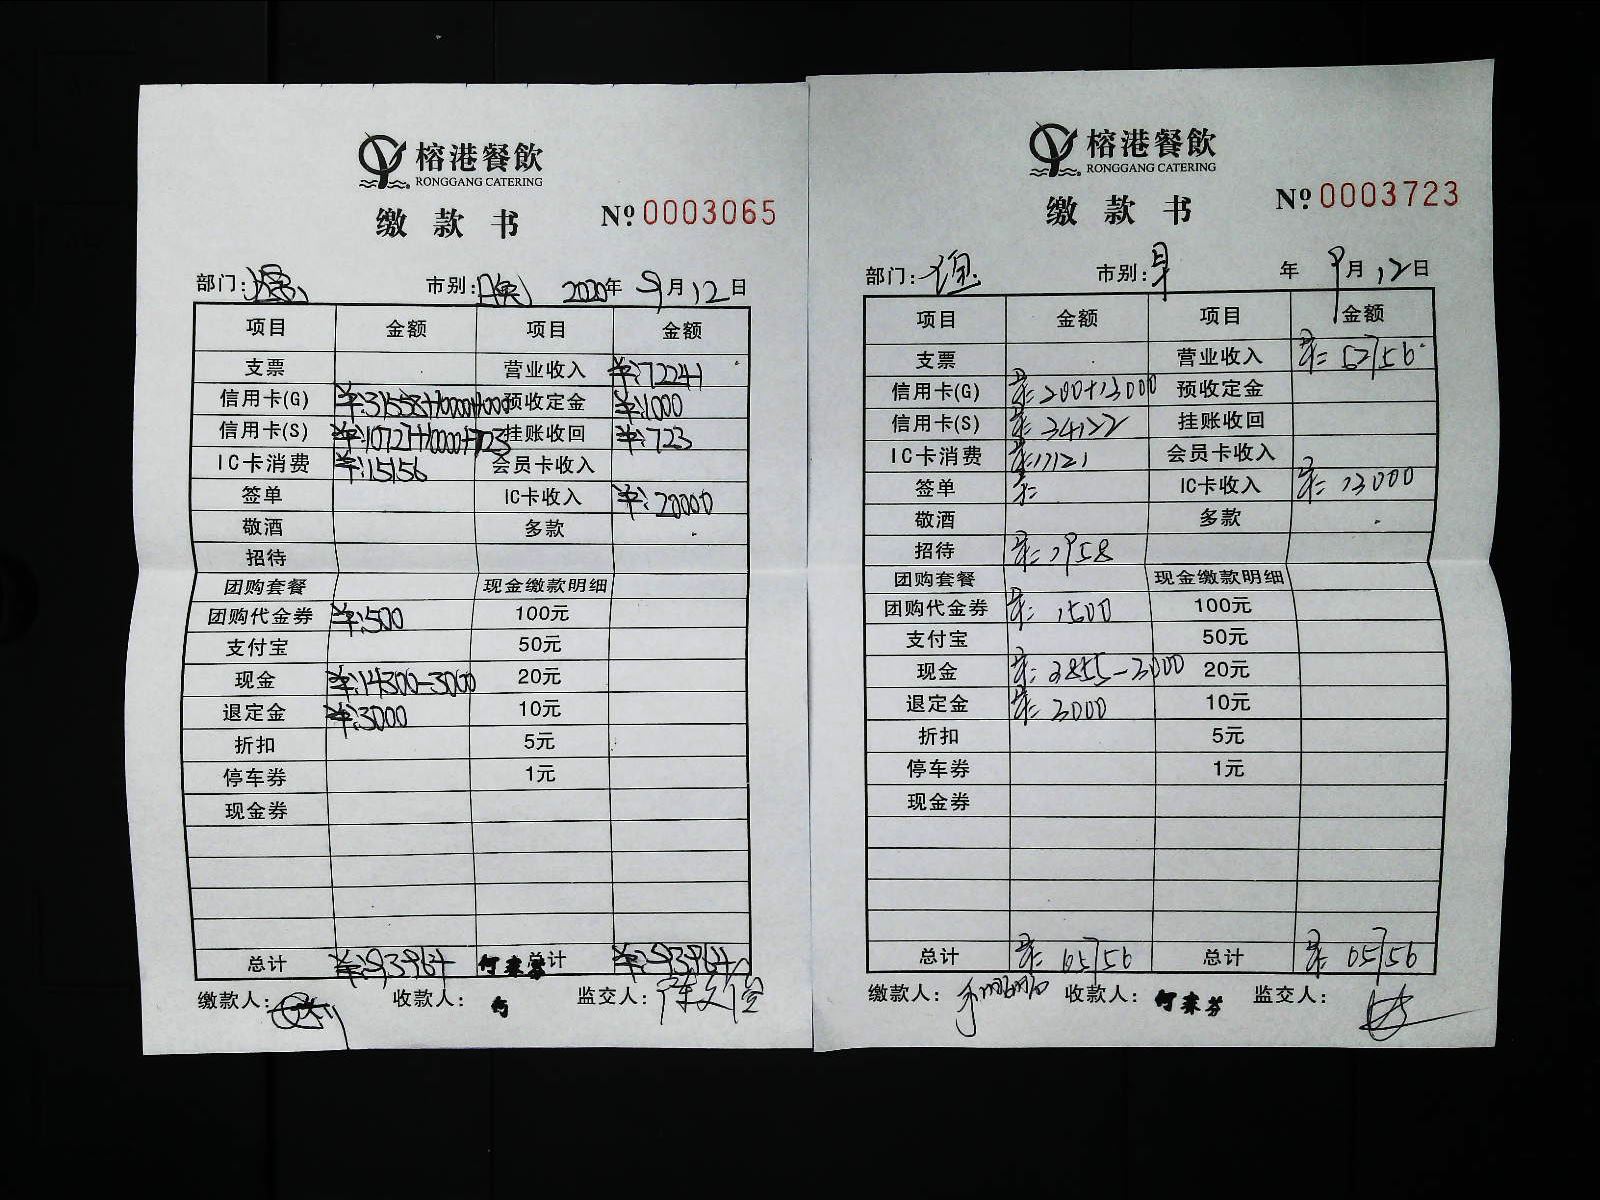 榕港餐飲
RONGGANG CATERING
缴款书
№ 0003065
部门: 市别: 2020年 9月 12日
项目 金额 项目 金额
支票 营业收入 ¥:72241
信用卡(G) ¥:31558+10000+1000 预收定金 ¥:1000
信用卡(S) ¥:10727+10000+723 挂账收回 ¥:723
IC卡消费 ¥:15156 会员卡收入
签单 IC卡收入 ¥:20000
敬酒 多款
招待
团购套餐 现金缴款明细
团购代金券 ¥:500 100元
支付宝 50元
现金 ¥:14300-3000 20元
退定金 ¥:3000 10元
折扣 5元
停车券 1元
现金券
总计 ¥:93964 总计 ¥:93964
缴款人: 收款人: 监交人:
榕港餐飲
RONGGANG CATERING
缴款书
№ 0003723
部门: 市别: 早 年 9月 12日
项目 金额 项目 金额
支票 营业收入 ¥: 52756
信用卡(G) ¥: 200+13000 预收定金
信用卡(S) ¥: 34122 挂账收回
IC卡消费 ¥: 11121 会员卡收入
签单 ¥: IC卡收入 ¥: 13000
敬酒 多款
招待 ¥: 1958
团购套餐 现金缴款明细
团购代金券 ¥: 1500 100元
支付宝 50元
现金 ¥: 3855-3000 20元
退定金 ¥: 3000 10元
折扣 5元
停车券 1元
现金券
总计 ¥: 65756 总计 ¥: 65756
缴款人: 收款人: 何森芬 监交人: